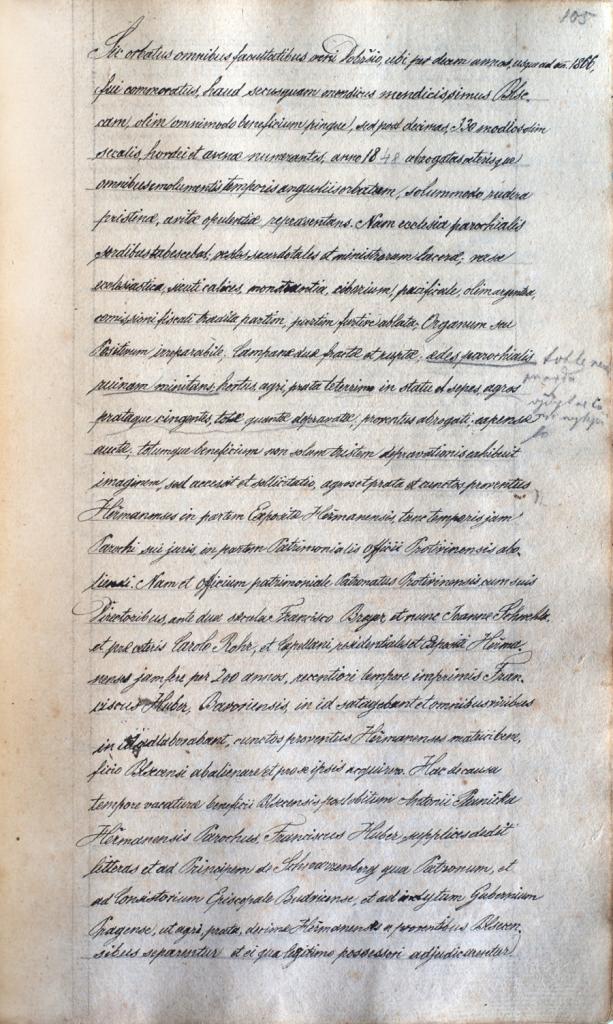 105
Sic orbatus omnibus facultatibus veni ubi per decem annos, usque ad an. 1866,
fui commoratus, haud secusquam mendicus mendicissimus Blse-
cam, olim omnimodo beneficium pingue, sed post decimas, 330 modios
secalis, hordei et avenae numerantes, anno 1848 abrogatas ceterisque
omnibus emolumentis temporis angustiis orbatum, solummodo rudera
pristinae, avitae opulentiae repraesentans. Nam ecclesia parochialis
sordibus tabescebat, vestes sacerdotales et ministrorum lacerae; vasa
ecclesiastica, sicuti calices, monstrantia, ciborium, pacificale, olim argentea,
comissioni fiscali tradita partim, partim furtim ablata; Organum seu
Positivum irreparabile; Campanae duae fractae et ruptae, aedes parochialis
ruinam minitans, hortus agri, prata teterrimo in statu et sepes, agros
prataque cingentes, totae quantae depravatae; proventus abrogati; expensae
auctae; totumque beneficium non solum tristem depravationis exhibuit
imaginem, sed accessit et sollicitatio, agros et prata et cunctos proventus
Heřmanenses in partem Expositi Heřmanensis, tunc temporis jam
Parochi sui juris, in partem Patrimonialis Officii Protivinensis aba-
liendi. Nam et officium patrimoniale Patronatus Protivinensis cum suis
Directoribus, ante duo saecula Francisco Breyer et nunc Joanne
et prae ceteris Carolo Rohr, et Capellani residentiales et Expositi Heřma-
nenses jam fere per 200 annos, recentiori tempore imprimis Fran-
ciscus Huber, Bavoriensis, in id satagebant et omnibus viribus
in id adlaborabant, cunctos proventus Heřmanenses matrici bene-
ficio Blsecensi abalienare et pro se ipsis acquirere. Hac de causa
tempore vacaturae beneficii Blsecensis post obitum Antonii
Heřmanensis Parochus, Franciscus Huber, supplices dedit
litteras et ad Principem de Schwarzenberg qua Patronum, et
ad Consistorium Episcopale Budvicense, et ad inclytum Gubernium
Pragense, ut agri, prata, decimae Heřmanenses a proventibus Blsecen-
sibus separentur et ei qua legitimo possessori adjudicarentur